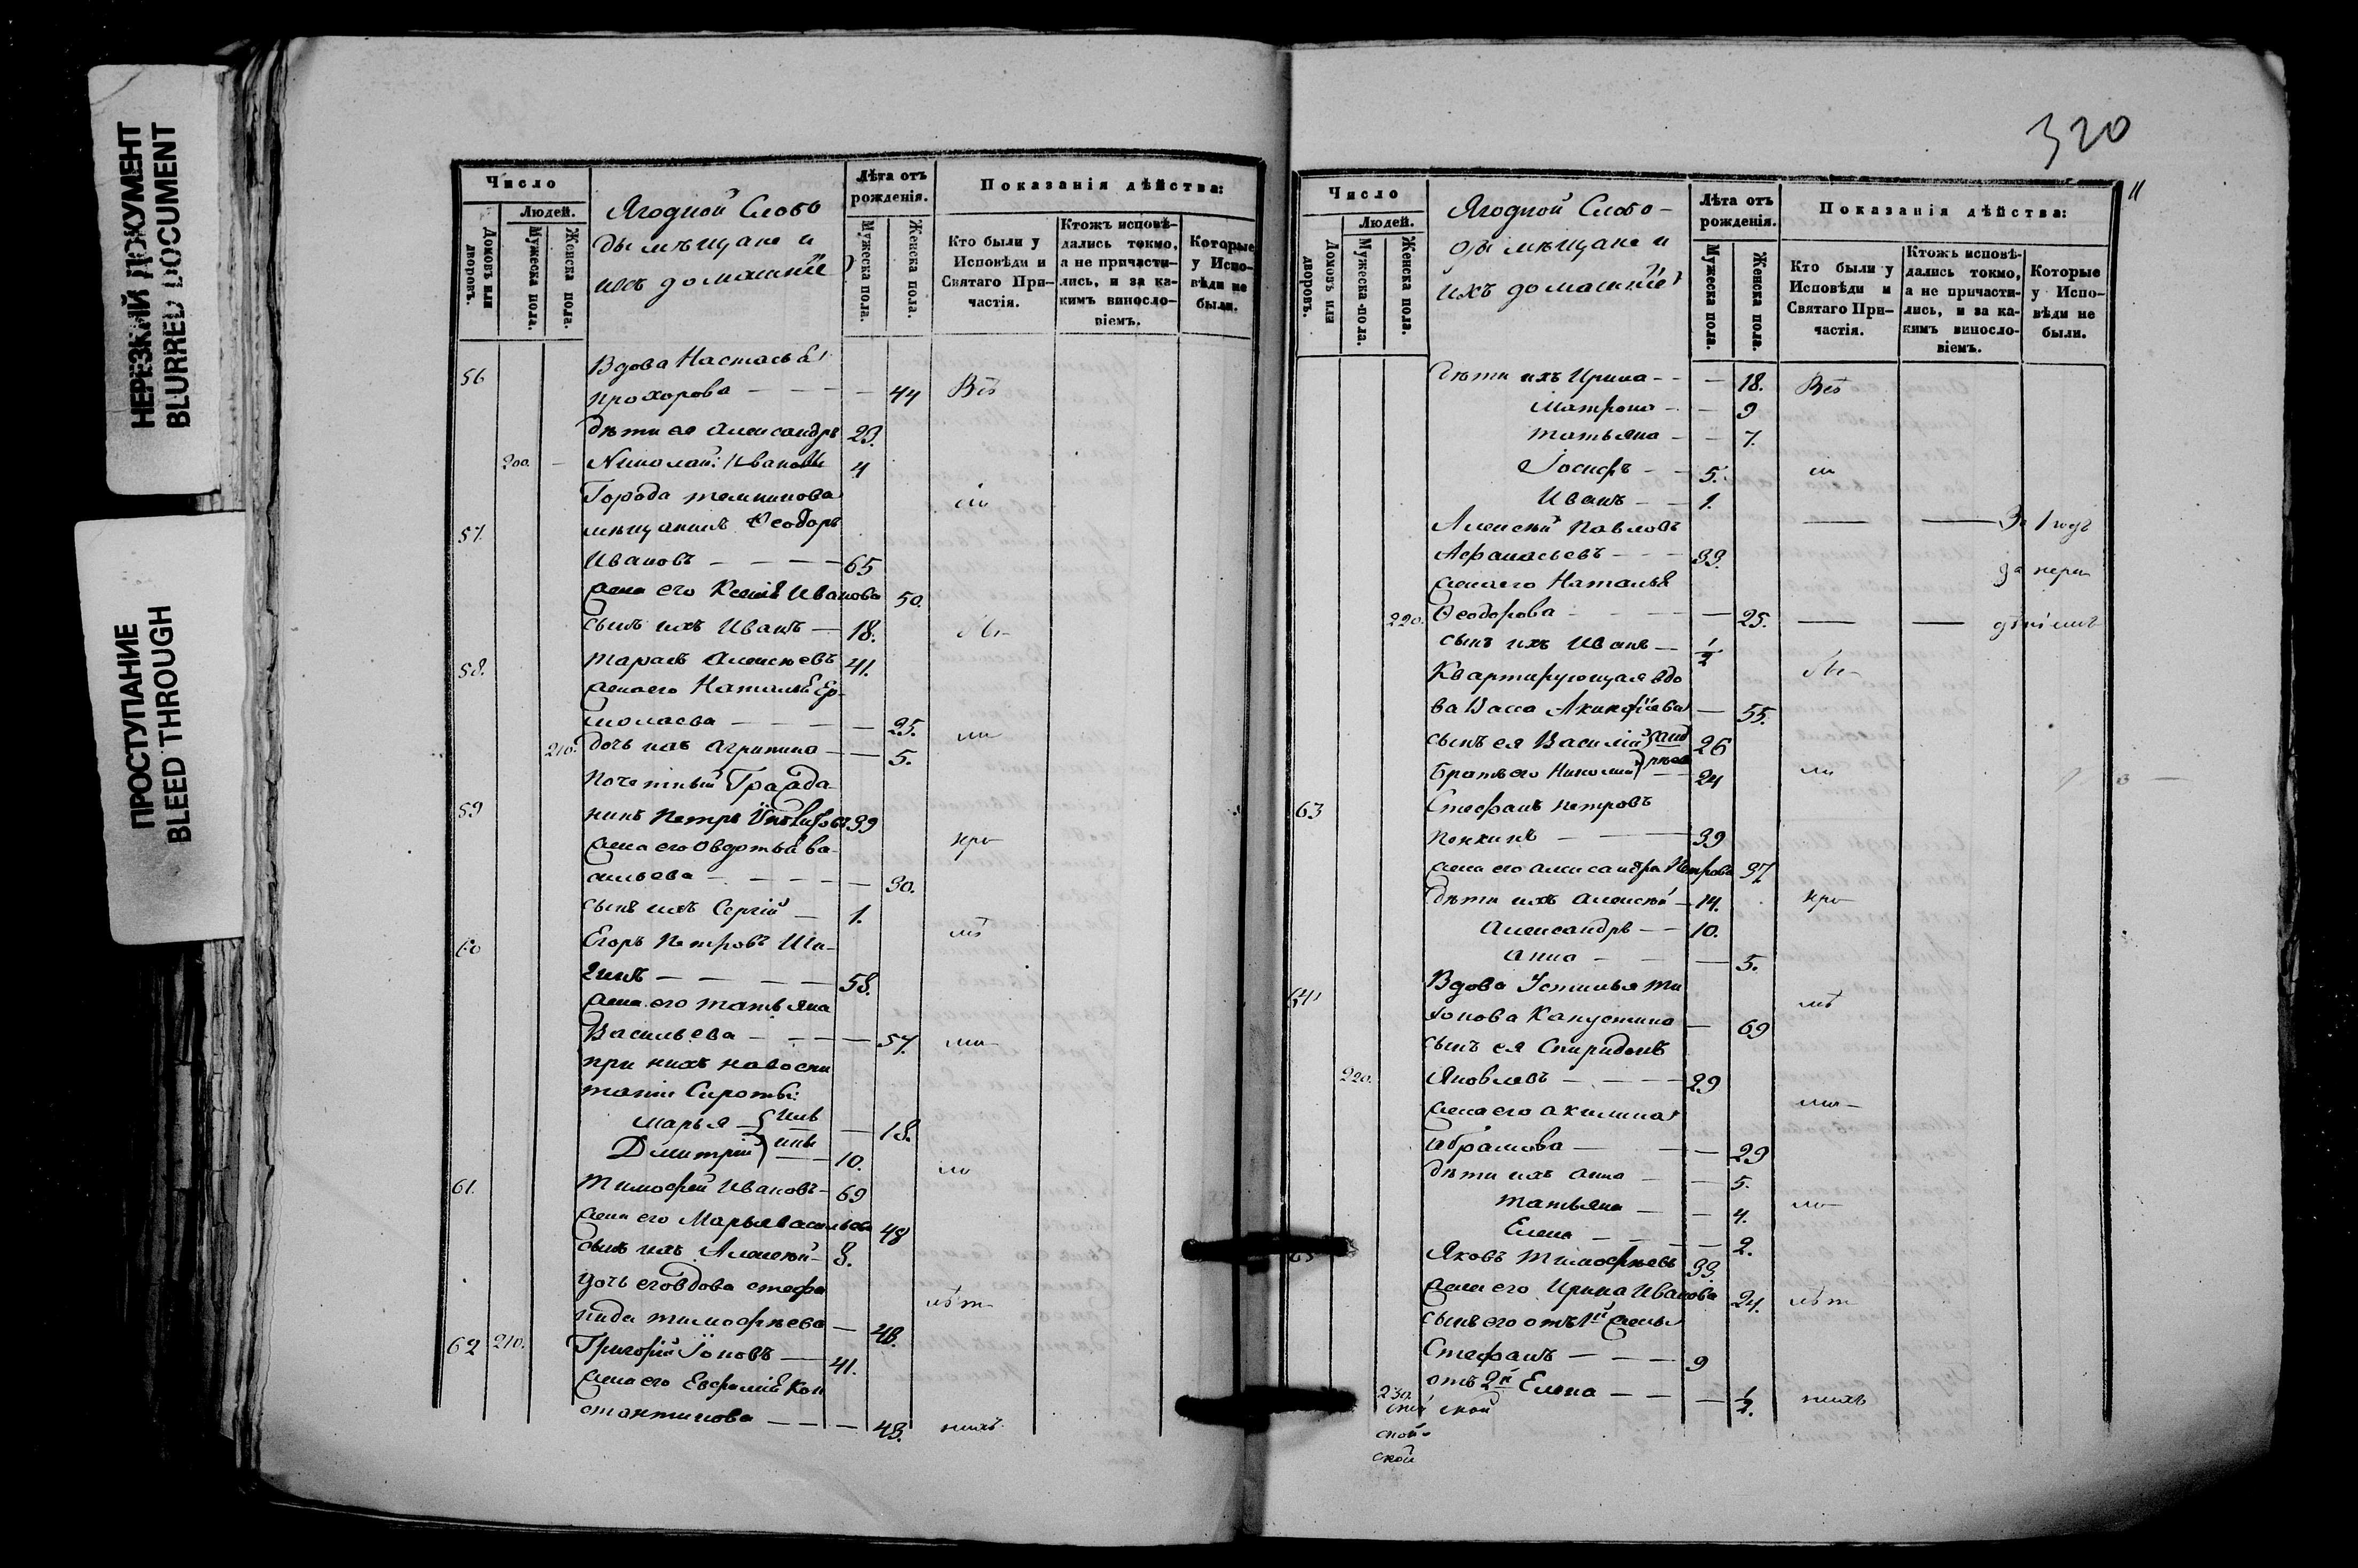 НЕРЕЗКИЙ ДОКУМЕНТ
BLURRED DOCUMENT
ПРОСТУПАНИЕ
BLEED THROUGH
Число
Людей.
Домовъ или дворовъ.
Мужеска пола.
Женска пола.
Ягодной Слобо
ды мѣщане и
ихъ домашніе
Лѣта отъ рожденія.
Мужеска пола.
Женска пола.
Показанія дѣйства:
Кто были у Исповѣди и Святаго Причастія.
Ктожъ исповѣдались токмо, а не причастились, и за какимъ винословіемъ.
Которые у Исповѣди не были.
56 Вдова Настасья
Прохорова — — — — 44 Всѣ
дѣти ея Александръ 23.
200. — Николай Ивановы 4
Города Темникова
57. мѣщанинъ Ѳеодоръ
Ивановъ — — — 65
жена его Ксенія Иванова 50.
сынъ ихъ Иванъ — 18.
58. Тарасъ Алексѣевъ 41.
жена его Наталья Ер-
молаева — — — — 25.
210. дочь ихъ Агрипина — — 5.
Почетный Гражда-
59 нинъ Петръ 39
жена его Овдотья Ва-
сильева — — — — 30.
сынъ ихъ Сергій — 1.
60 Егоръ Петровъ Ши-
— — — 58.
жена его Татьяна
Васильева — — — — 57.
при нихъ на воспи
таніи Сироты:
Марья — — 18.
Димитрій — — 10.
61. Тимофей Ивановъ — 69
жена его Марья Васильева 48
сынъ ихъ Алексѣй — 8.
дочь его вдова Стефа
нида Тимофѣева — 48.
62 210. Григорій Іоновъ — 41.
жена его Евфимія Кон
стантинова — — — 43. нихъ
320
Число
Людей.
Домовъ или дворовъ.
Мужеска пола.
Женска пола.
Ягодной Слобо-
ды мѣщане и
ихъ домашніе
Лѣта отъ рожденія.
Мужеска пола.
Женска пола.
Показанія дѣйства:
Кто были у Исповѣди и Святаго Причастія.
Ктожъ исповѣдались токмо, а не причастились, и за какимъ винословіемъ.
Которые у Исповѣди не были.
Дѣти ихъ Ирина — — — 18. Всѣ
Матрона — — 9
Татьяна — — 7.
Іосифъ — — 5.
Иванъ — — 1.
Алексѣй Павловъ — — За 1 годъ
Афанасьевъ — — — 33.
жена его Наталья за нера
220. Ѳеодорова — — — — 25. — — дѣніемъ
сынъ ихъ Иванъ — 1/2
Квартирующая вдо
ва Васса Акинфіева — 55.
сынъ ея Василій 26
братъ его Николай — 24
63 Стефанъ Петровъ
Пенкинъ — — 39
жена его Александра Петрова 37.
дѣти ихъ Алексѣй — 14.
Александръ — — 10.
Анна — — 5.
64 Вдова Устинья Ти
хонова Капустина — 69
сынъ ея Спиридонъ
220. Яковлевъ — — — 29
жена его Акилина
Абрамова — — — 29
дѣти ихъ Анна — — 5.
Татьяна — — 4.
Елена — — 2.
Яковъ Тимофѣевъ 33.
жена его Ирина Иванова 24.
сынъ его отъ 1й жены
Стефанъ — — — 9
230. отъ 2й Елена — — — 1/2. нихъ